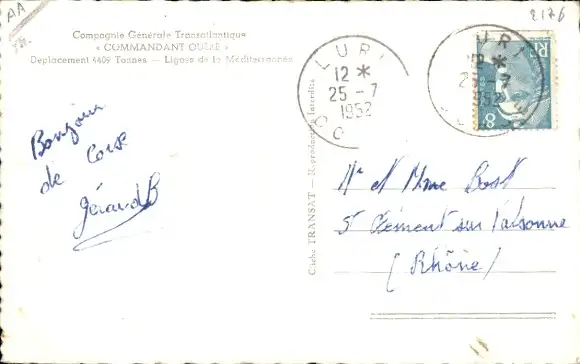 AA
2176
Compagnie Générale Transatlantique
« COMMANDANT QUÉRÉ »
Déplacement 4409 Tonnes — Lignes de la Méditerranée
LURI
12 *
25 - 7
1952
LURI
1952
8
Bonjour
de Corse
GérardB
Cliché TRANSAT — Reproduction Interdite
Mr et Mme Bost
St Clément sur Valsonne
(Rhône)